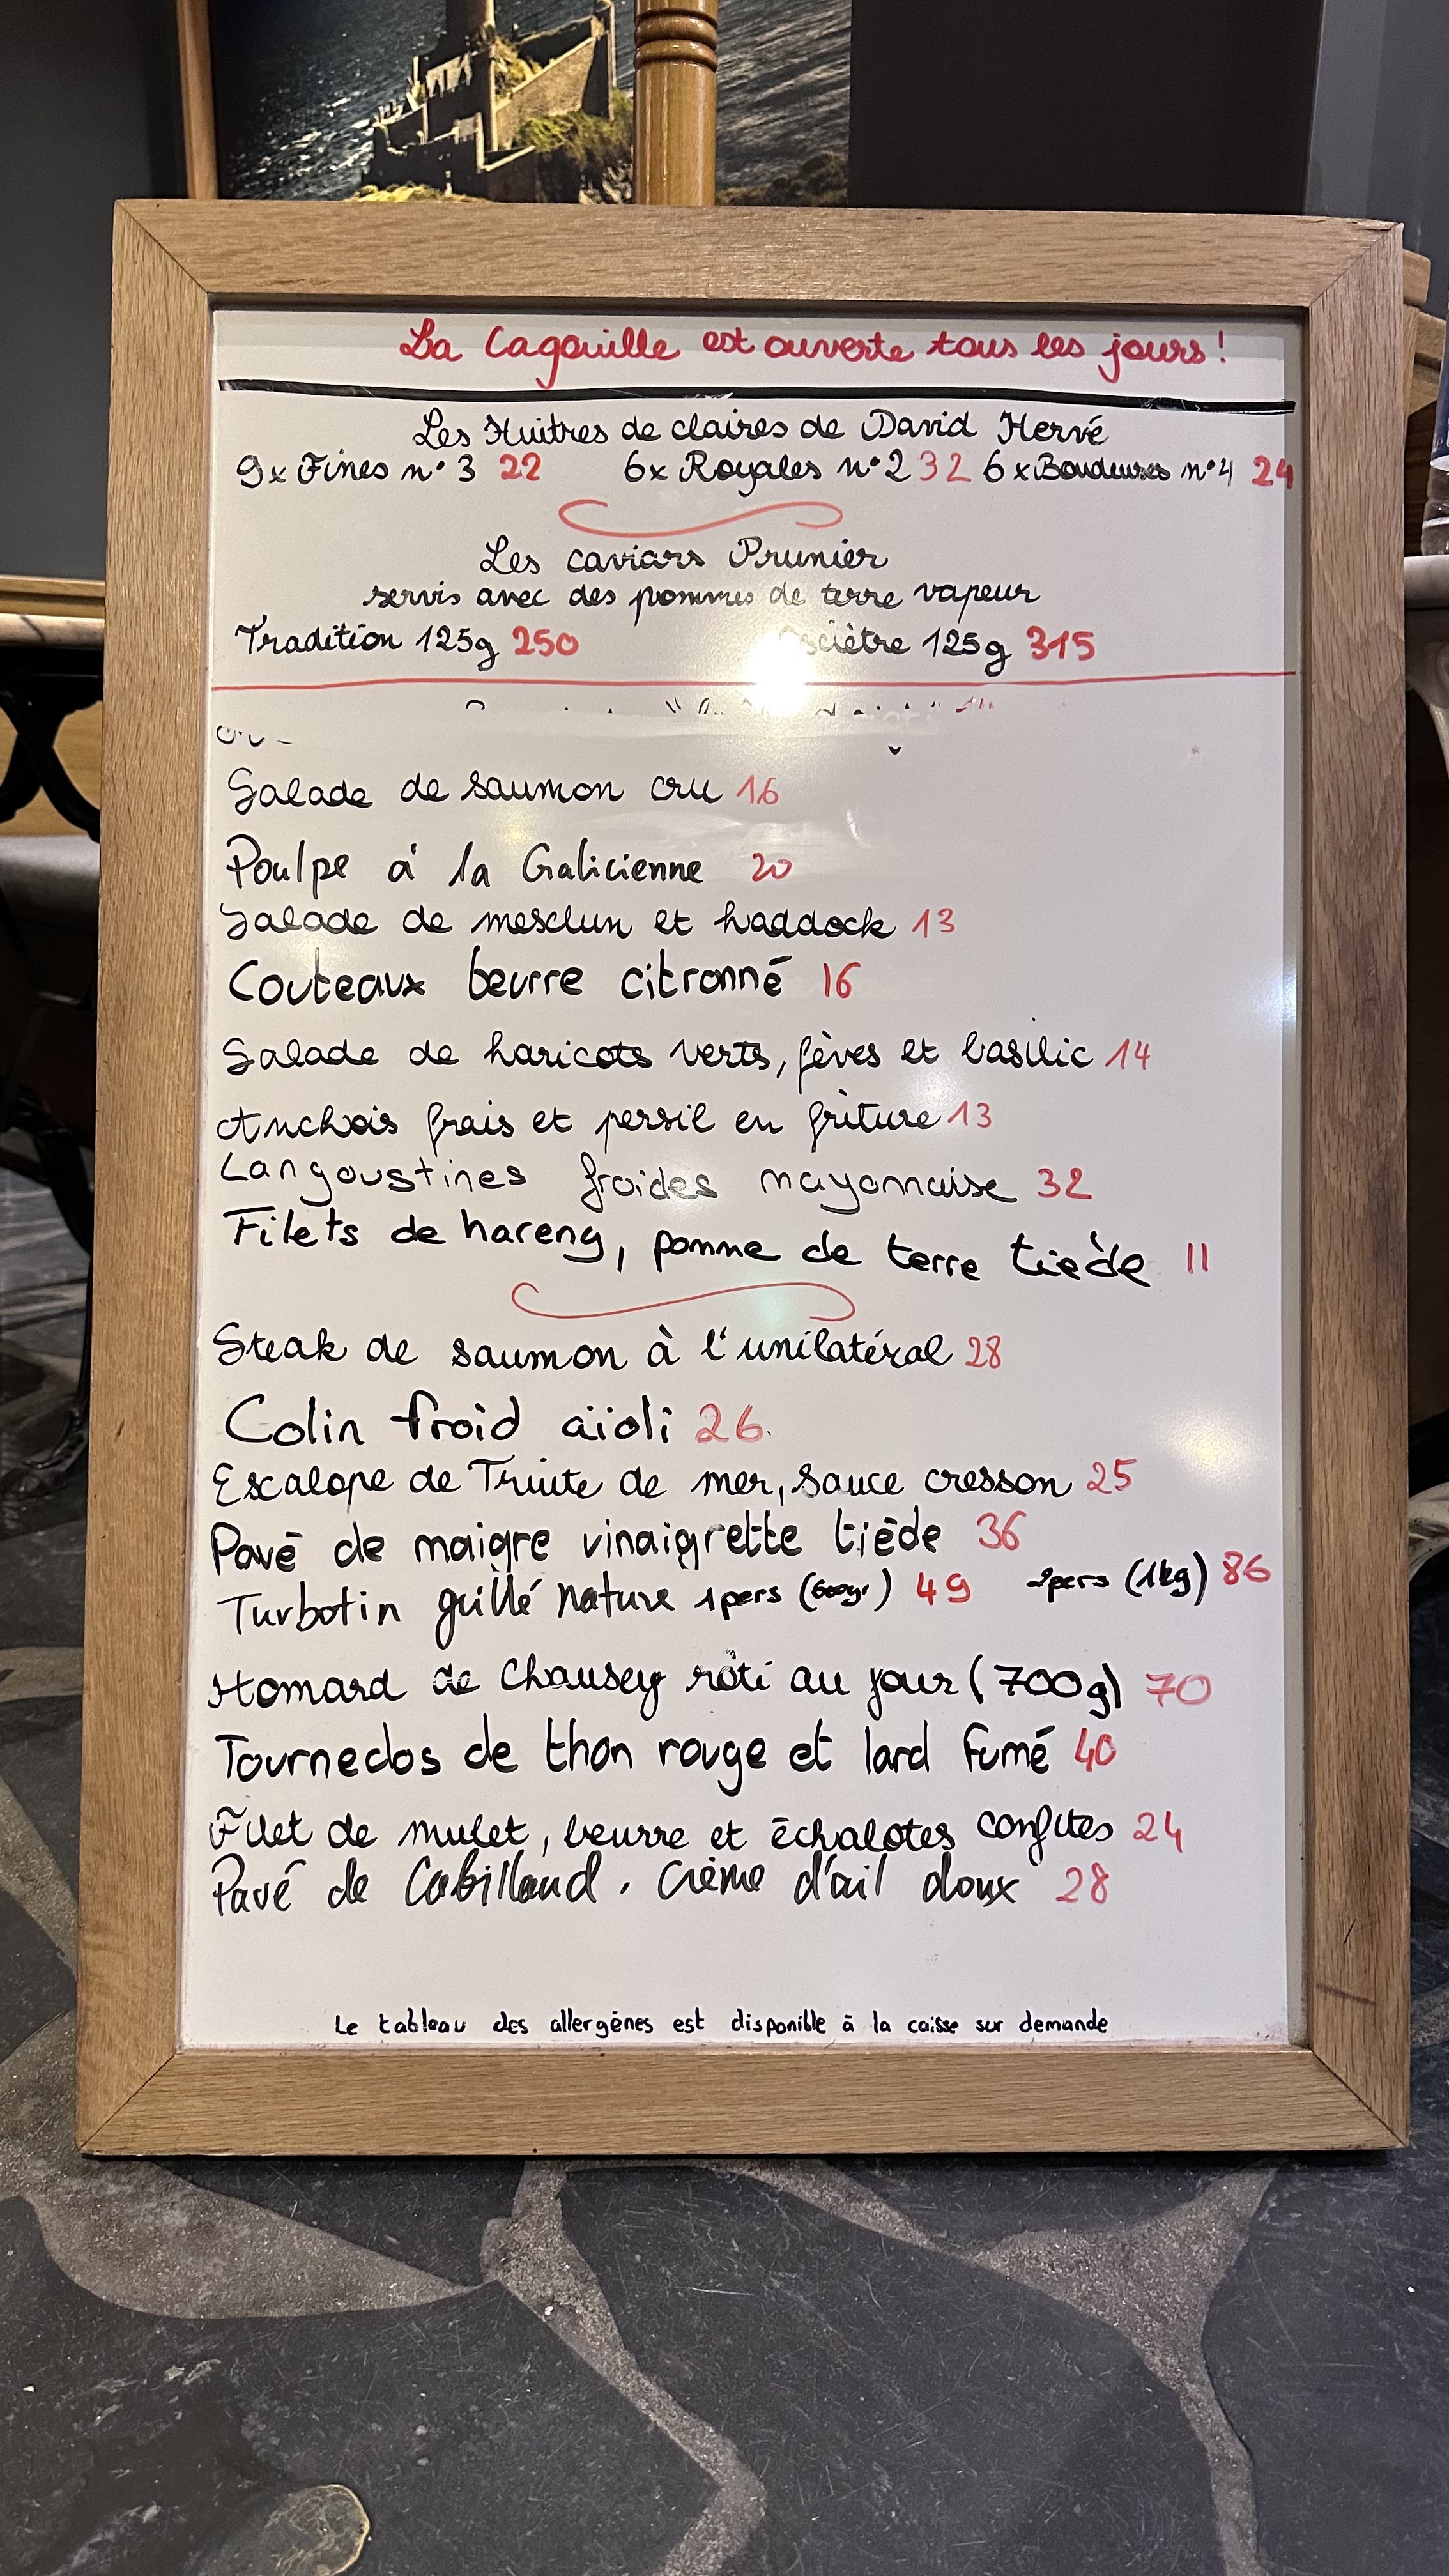 La Cagouille est ouverte tous les jours !
Les Huitres de claires de David Hervé
9x Fines n°3 22 6x Royales n°2 32 6x Boudeuses n°4 24
Les caviars Prunier
servis avec des pommes de terre vapeur
Tradition 125g 250 125g 315
Salade de saumon cru 16
Poulpe à la Galicienne 20
Salade de mesclun et haddock 13
Couteaux beurre citronné 16
Salade de haricots verts, fèves et basilic 14
Anchois frais et persil en friture 13
Langoustines froides mayonnaise 32
Filets de hareng, pomme de terre tiède 11
Steak de saumon à l'unilatéral 28
Colin froid aïoli 26
Escalope de Truite de mer, sauce cresson 25
Pavé de maigre vinaigrette tiède 36
Turbotin grillé nature 1pers (600gr) 49 2pers (1kg) 86
Homard de Chausey rôti au four (700g) 70
Tournedos de thon rouge et lard fumé 40
Filet de mulet, beurre et échalotes confites 24
Pavé de Cabillaud, crème d'ail doux 28
Le tableau des allergènes est disponible à la caisse sur demande